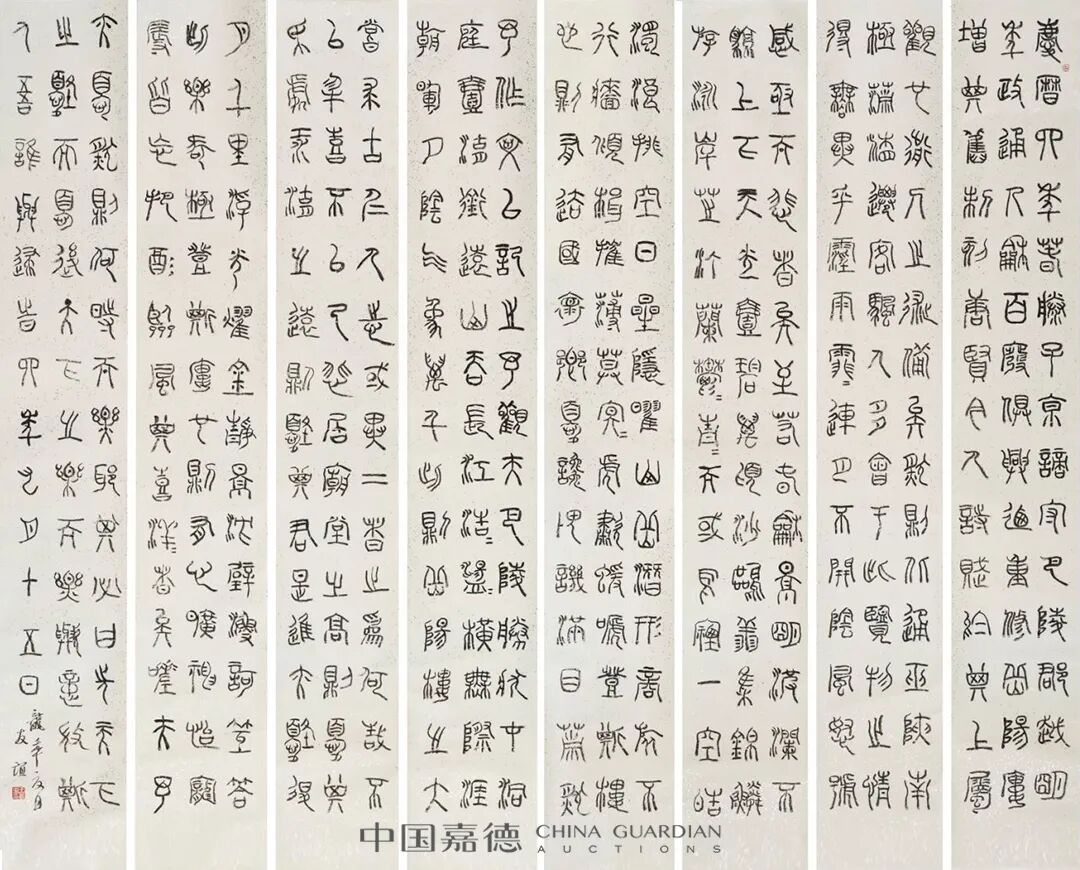 慶曆四年春滕子京謫守巴陵郡越明
年政通人和百廢俱興迺重修岳陽樓
增其舊制刻唐賢今人詩賦於其上屬
觀也前人之述備矣然則北通巫峽南
極瀟湘遷客騷人多會于此覽物之情
得無異乎霪雨霏霏連月不開陰風怒號
感極而悲者矣至若春和景明波瀾不
驚上下天光一碧萬頃沙鷗翔集錦鱗
游泳岸芷汀蘭郁郁青青而或長煙一空皓
濁浪排空日星隱曜山岳潛形商旅不
行檣傾楫摧薄暮冥冥虎嘯猿啼登斯樓
也則有去國懷鄉憂讒畏譏滿目蕭然
予作文以記之予觀夫巴陵勝狀在洞
庭一湖銜遠山吞長江浩浩湯湯橫無際涯
朝暉夕陰氣象萬千此則岳陽樓之大
嘗求古仁人之心或異二者之為何哉不
以物喜不以己悲居廟堂之高則憂其
民處江湖之遠則憂其君是進亦憂退
月千里浮光耀金靜影沉璧漁歌互答
此樂何極登斯樓也則有心曠神怡寵
辱皆忘把酒臨風其喜洋洋者矣嗟夫予
亦憂然則何時而樂耶其必曰先天下
之憂而憂後天下之樂而樂歟噫微斯
人吾誰與歸時四年九月十五日
中国嘉德 CHINA GUARDIAN
AUCTIONS